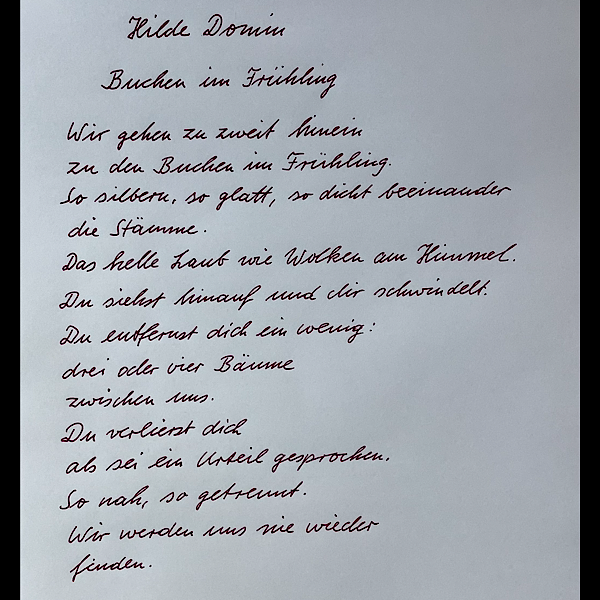 Hilde Domin
Buchen im Frühling
Wir gehen zu zweit hinein
zu den Buchen im Frühling.
So silbern, so glatt, so dicht beeinander
die Stämme.
Das helle Laub wie Wolken am Himmel.
Du siehst hinauf und dir schwindelt.
Du entfernst dich ein wenig:
drei oder vier Bäume
zwischen uns.
Du verlierst dich
als sei ein Urteil gesprochen.
So nah, so getrennt.
Wir werden uns nie wieder
finden.